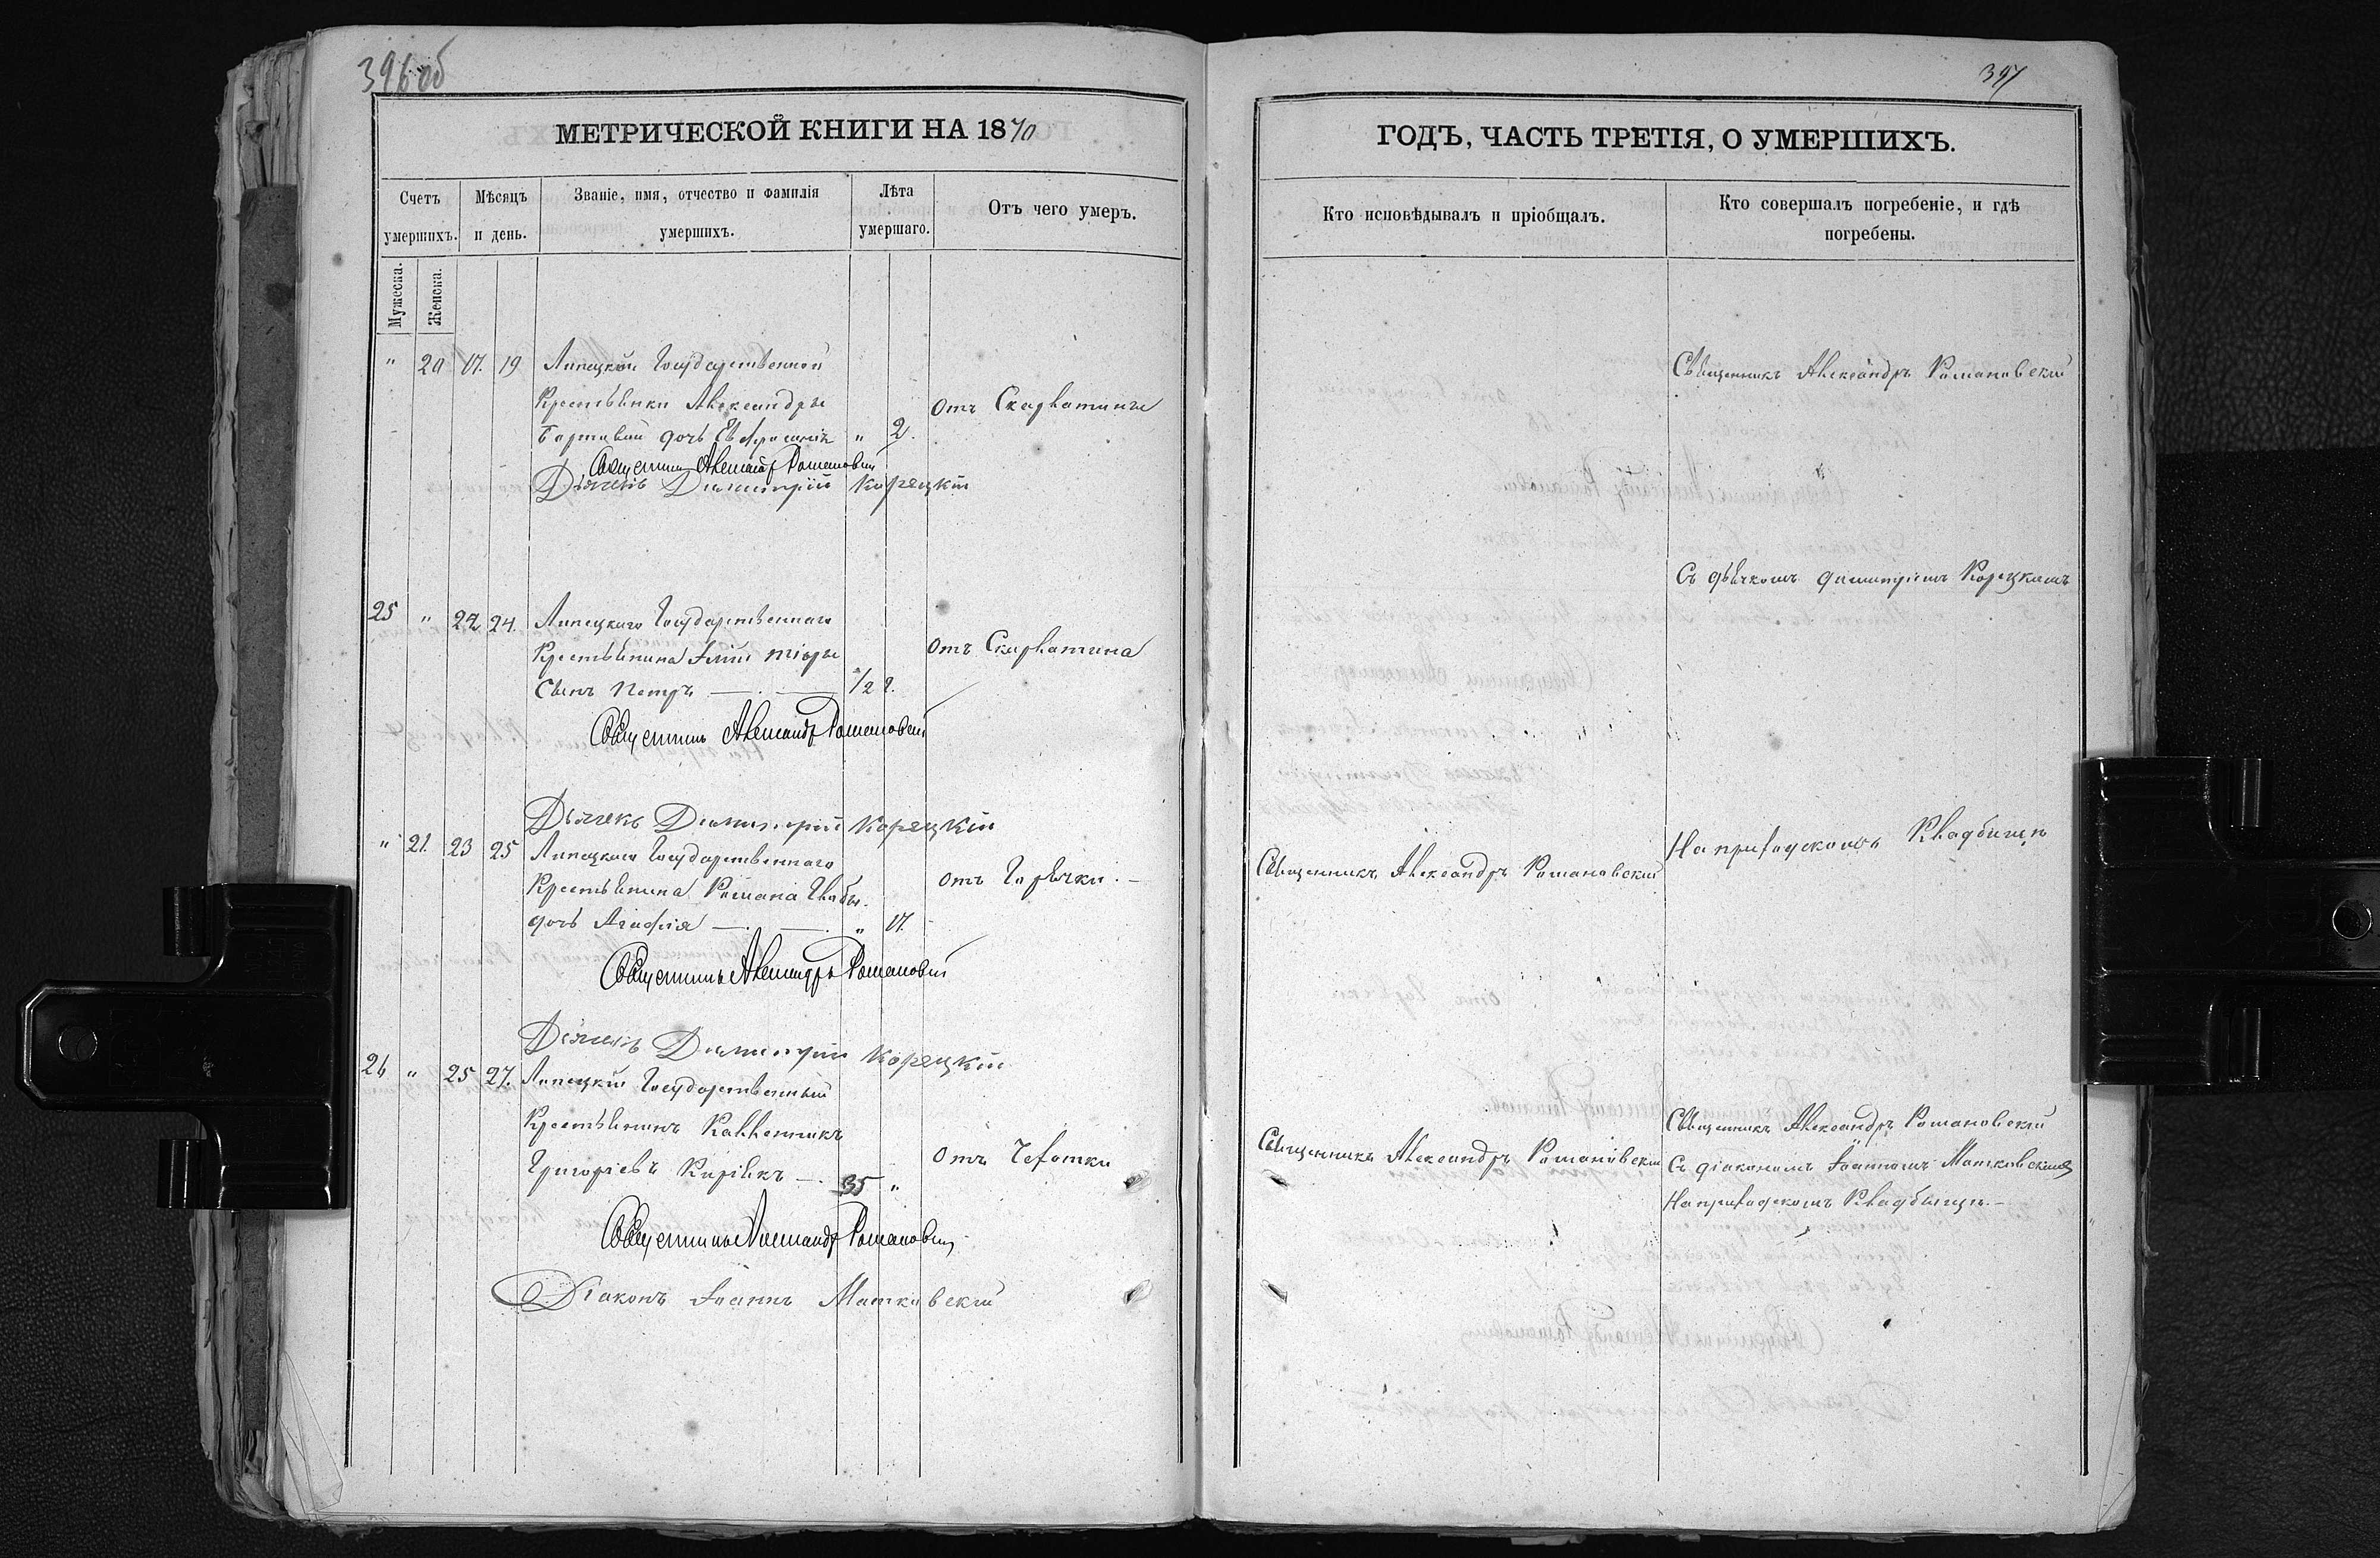 396 об
МЕТРИЧЕСКОЙ КНИГИ НА 1870
Счетъ умершихъ.
Мѣсяцъ и день.
Званіе, имя, отчество и фамилія умершихъ.
Лѣта умершаго.
Отъ чего умеръ.
Мужеска.
Женска.
" 20 17. 19 Липецкой Государственной
Крестьянки Александры
дочь Евфросинія " 2.
отъ Скарлатины
Священникъ Александръ Романовскій
Дьячекъ Димитрій Корецкій
25 " 22 24. Липецкаго Государственнаго
Крестьянина
Сынъ Петръ 1/2 г.
отъ Скарлатина
Священникъ Александръ Романовскій
Дьячекъ Димитрій Корецкій
" 21. 23 25 Липецкаго Государственнаго
Крестьянина Романа
дочь Агафія " 17.
отъ Горячки. —
Священникъ Александръ Романовскій
Дьячекъ Димитрій Корецкій
26 " 25 27. Липецкій Государственный
Крестьянинъ Каллинникъ
Григоріевъ 35 "
отъ Чехотки
Священникъ Александръ Романовскій
Діаконъ Іоаннъ Матковскій
397
ГОДЪ, ЧАСТЬ ТРЕТІЯ, О УМЕРШИХЪ.
Кто исповѣдывалъ и пріобщалъ.
Кто совершалъ погребеніе, и гдѣ
погребены.
Священникъ Александръ Романовскій
Съ дьячкомъ Димитріемъ Корецкимъ
Священникъ Александръ Романовскій
На приходскомъ Кладбищѣ
Священникъ Александръ Романовскій
Священникъ Александръ Романовскій
Съ діакономъ Іоанномъ Матковскимъ
На приходскомъ Кладбищѣ. —